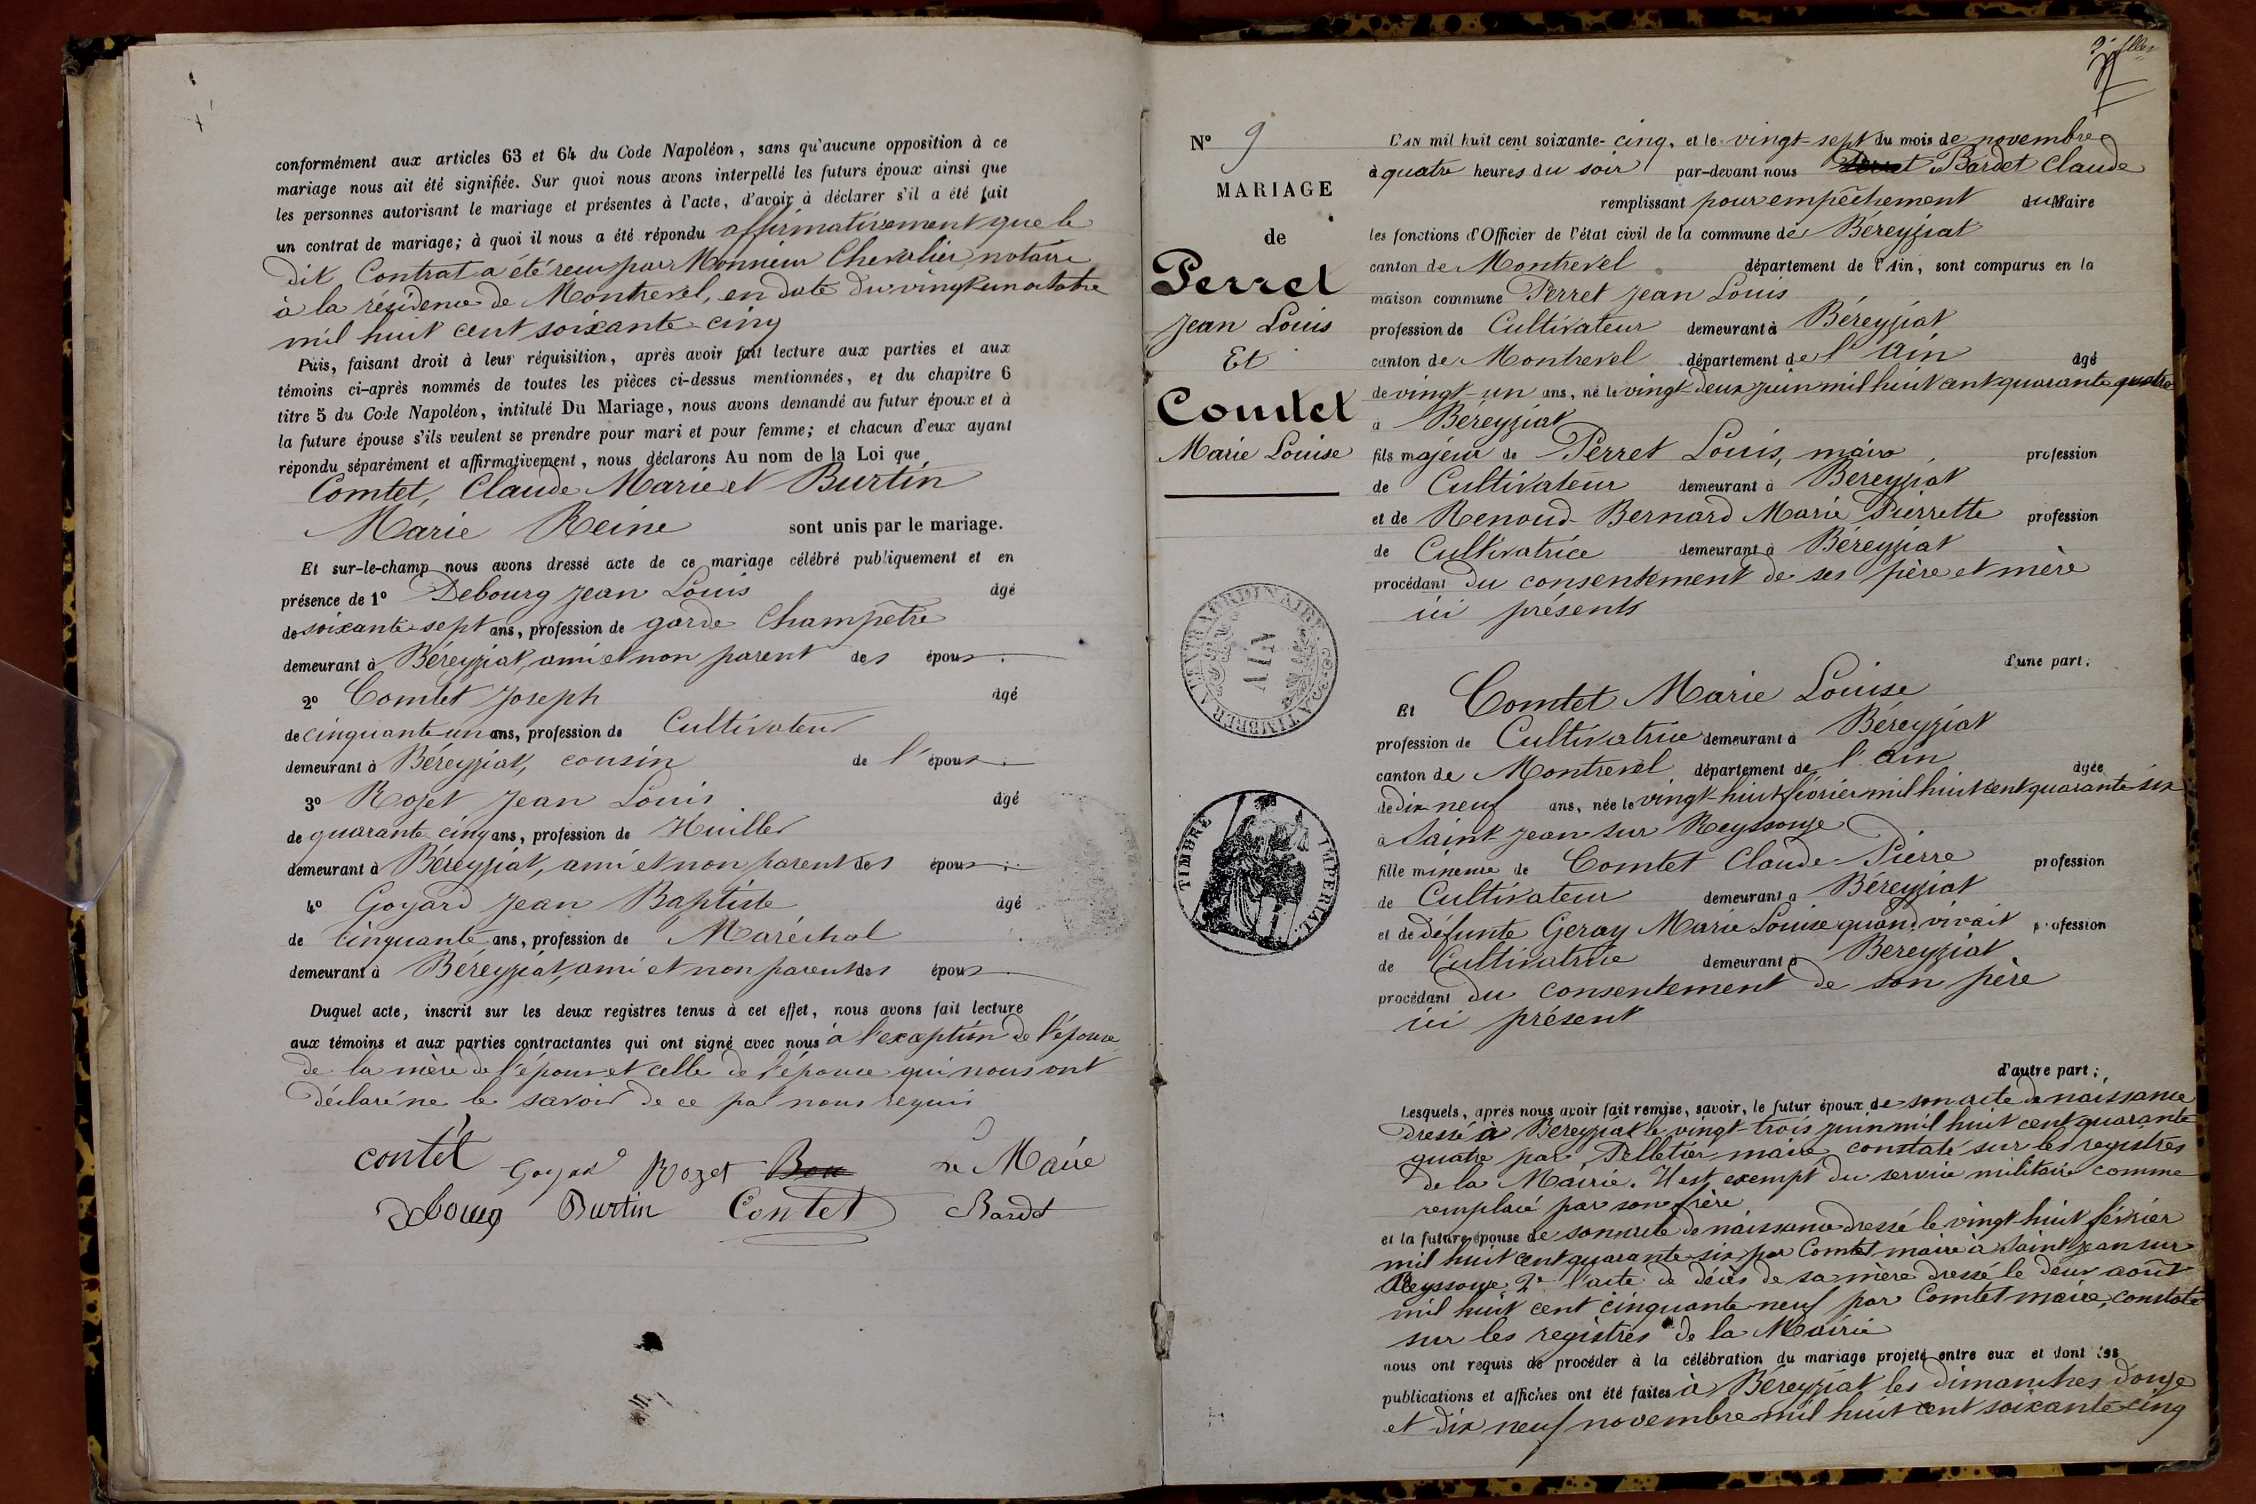 conformément aux articles 63 et 64 du Code Napoléon, sans qu'aucune opposition à ce
mariage nous ait été signifiée. Sur quoi nous avons interpellé les futurs époux ainsi que
les personnes autorisant le mariage et présentes à l'acte, d'avoir à déclarer s'il a été fait
un contrat de mariage; à quoi il nous a été répondu affirmativement que le
dit Contrat a été reçu par Monsieur Chevalier, notaire
à la résidence de Montrevel, en date du vingt un octobre
mil huit cent soixante-cinq
Puis, faisant droit à leur réquisition, après avoir fait lecture aux parties et aux
témoins ci-après nommés de toutes les pièces ci-dessus mentionnées, et du chapitre 6
titre 5 du Code Napoléon, intitulé Du Mariage, nous avons demandé au futur époux et à
la future épouse s'ils veulent se prendre pour mari et pour femme; et chacun d'eux ayant
répondu séparément et affirmativement, nous déclarons Au nom de la Loi que
Comtet, Claude Marie et Burtin
Marie Reine sont unis par le mariage.
Et sur-le-champ nous avons dressé acte de ce mariage célébré publiquement et en
présence de 1° Debourg Jean Louis âgé
de soixante sept ans, profession de garde Champêtre
demeurant à Béreyziat, ami et non parent des époux
2° Comtet Joseph âgé
de cinquante un ans, profession de Cultivateur
demeurant à Béreyziat, cousin de l'époux
3° Rozet Jean Louis âgé
de quarante cinq ans, profession de Huilier
demeurant à Béreyziat, ami et non parent des époux
4° Goyard Jean Baptiste âgé
de cinquante ans, profession de Maréchal
demeurant à Béreyziat, ami et non parent des époux
Duquel acte, inscrit sur les deux registres tenus à cet effet, nous avons fait lecture
aux témoins et aux parties contractantes qui ont signé avec nous à l'exception de l'épouse
de la mère de l'époux et celle de l'épouse qui nous ont
déclaré ne le savoir de ce par nous requis
contet Goyard Rozet Le Maire
Debourg Burtin Contet Bardet
N° 9
MARIAGE
de
Perret
Jean Louis
Et
Comtet
Marie Louise
TIMBRE IMPERIAL
AIN
L'AN mil huit cent soixante-cinq, et le vingt-sept du mois de novembre
à quatre heures du soir par-devant nous Bardet Claude
remplissant pour empêchement du Maire
les fonctions d'Officier de l'état civil de la commune de Béreyziat
canton de Montrevel département de l'Ain, sont comparus en la
maison commune Perret Jean Louis
profession de Cultivateur demeurant à Béreyziat
canton de Montrevel département de l'Ain âgé
de vingt-un ans, né le vingt-deux juin mil huit cent quarante quatre
à Béreyziat
fils majeur de Perret Louis, maire, profession
de Cultivateur demeurant à Béreyziat
et de Renoud-Bernard Marie Pierrette profession
de Cultivatrice demeurant à Béreyziat
procédant du consentement de ses père et mère
ici présents
d'une part;
Et Comtet Marie Louise
profession de Cultivatrice demeurant à Béreyziat
canton de Montrevel département de l'Ain âgée
de dix neuf ans, née le vingt-huit février mil huit cent quarante six
à Saint Jean sur Reyssouze
fille mineure de Comtet Claude-Pierre profession
de Cultivateur demeurant à Béreyziat
et de défunte Geray Marie Louise quand vivait profession
de Cultivatrice demeurant à Bereyziat
procédant du consentement de son père
ici présent
d'autre part;
Lesquels, après nous avoir fait remise, savoir, le futur époux de son acte de naissance
dressé à Béreyziat le vingt-trois juin mil huit cent quarante
quatre par Pelletier maire constaté sur les registres
de la Mairie. Il est exempt du service militaire comme
remplacé par son frère
et la future épouse de son acte de naissance dressé le vingt huit février
mil huit cent quarante-six par Comtet maire à Saint Jean sur
Reyssouze 2° l'acte de décès de sa mère dressé le deux août
mil huit cent cinquante-neuf par Comtet maire, constaté
sur les registres de la Mairie
nous ont requis de procéder à la célébration du mariage projeté entre eux et dont les
publications et affiches ont été faites à Béreyziat les dimanches douze
et dix neuf novembre mil huit cent soixante-cinq